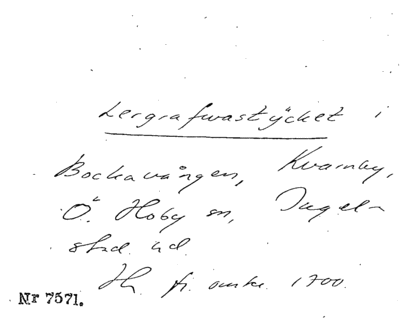 Lergrafwastÿcket i
Bockavången, Kvarnby,
Ö. Hoby sn, Ingel-
stad hd.
Hs. fr. omkr. 1700.
Nr 7571.